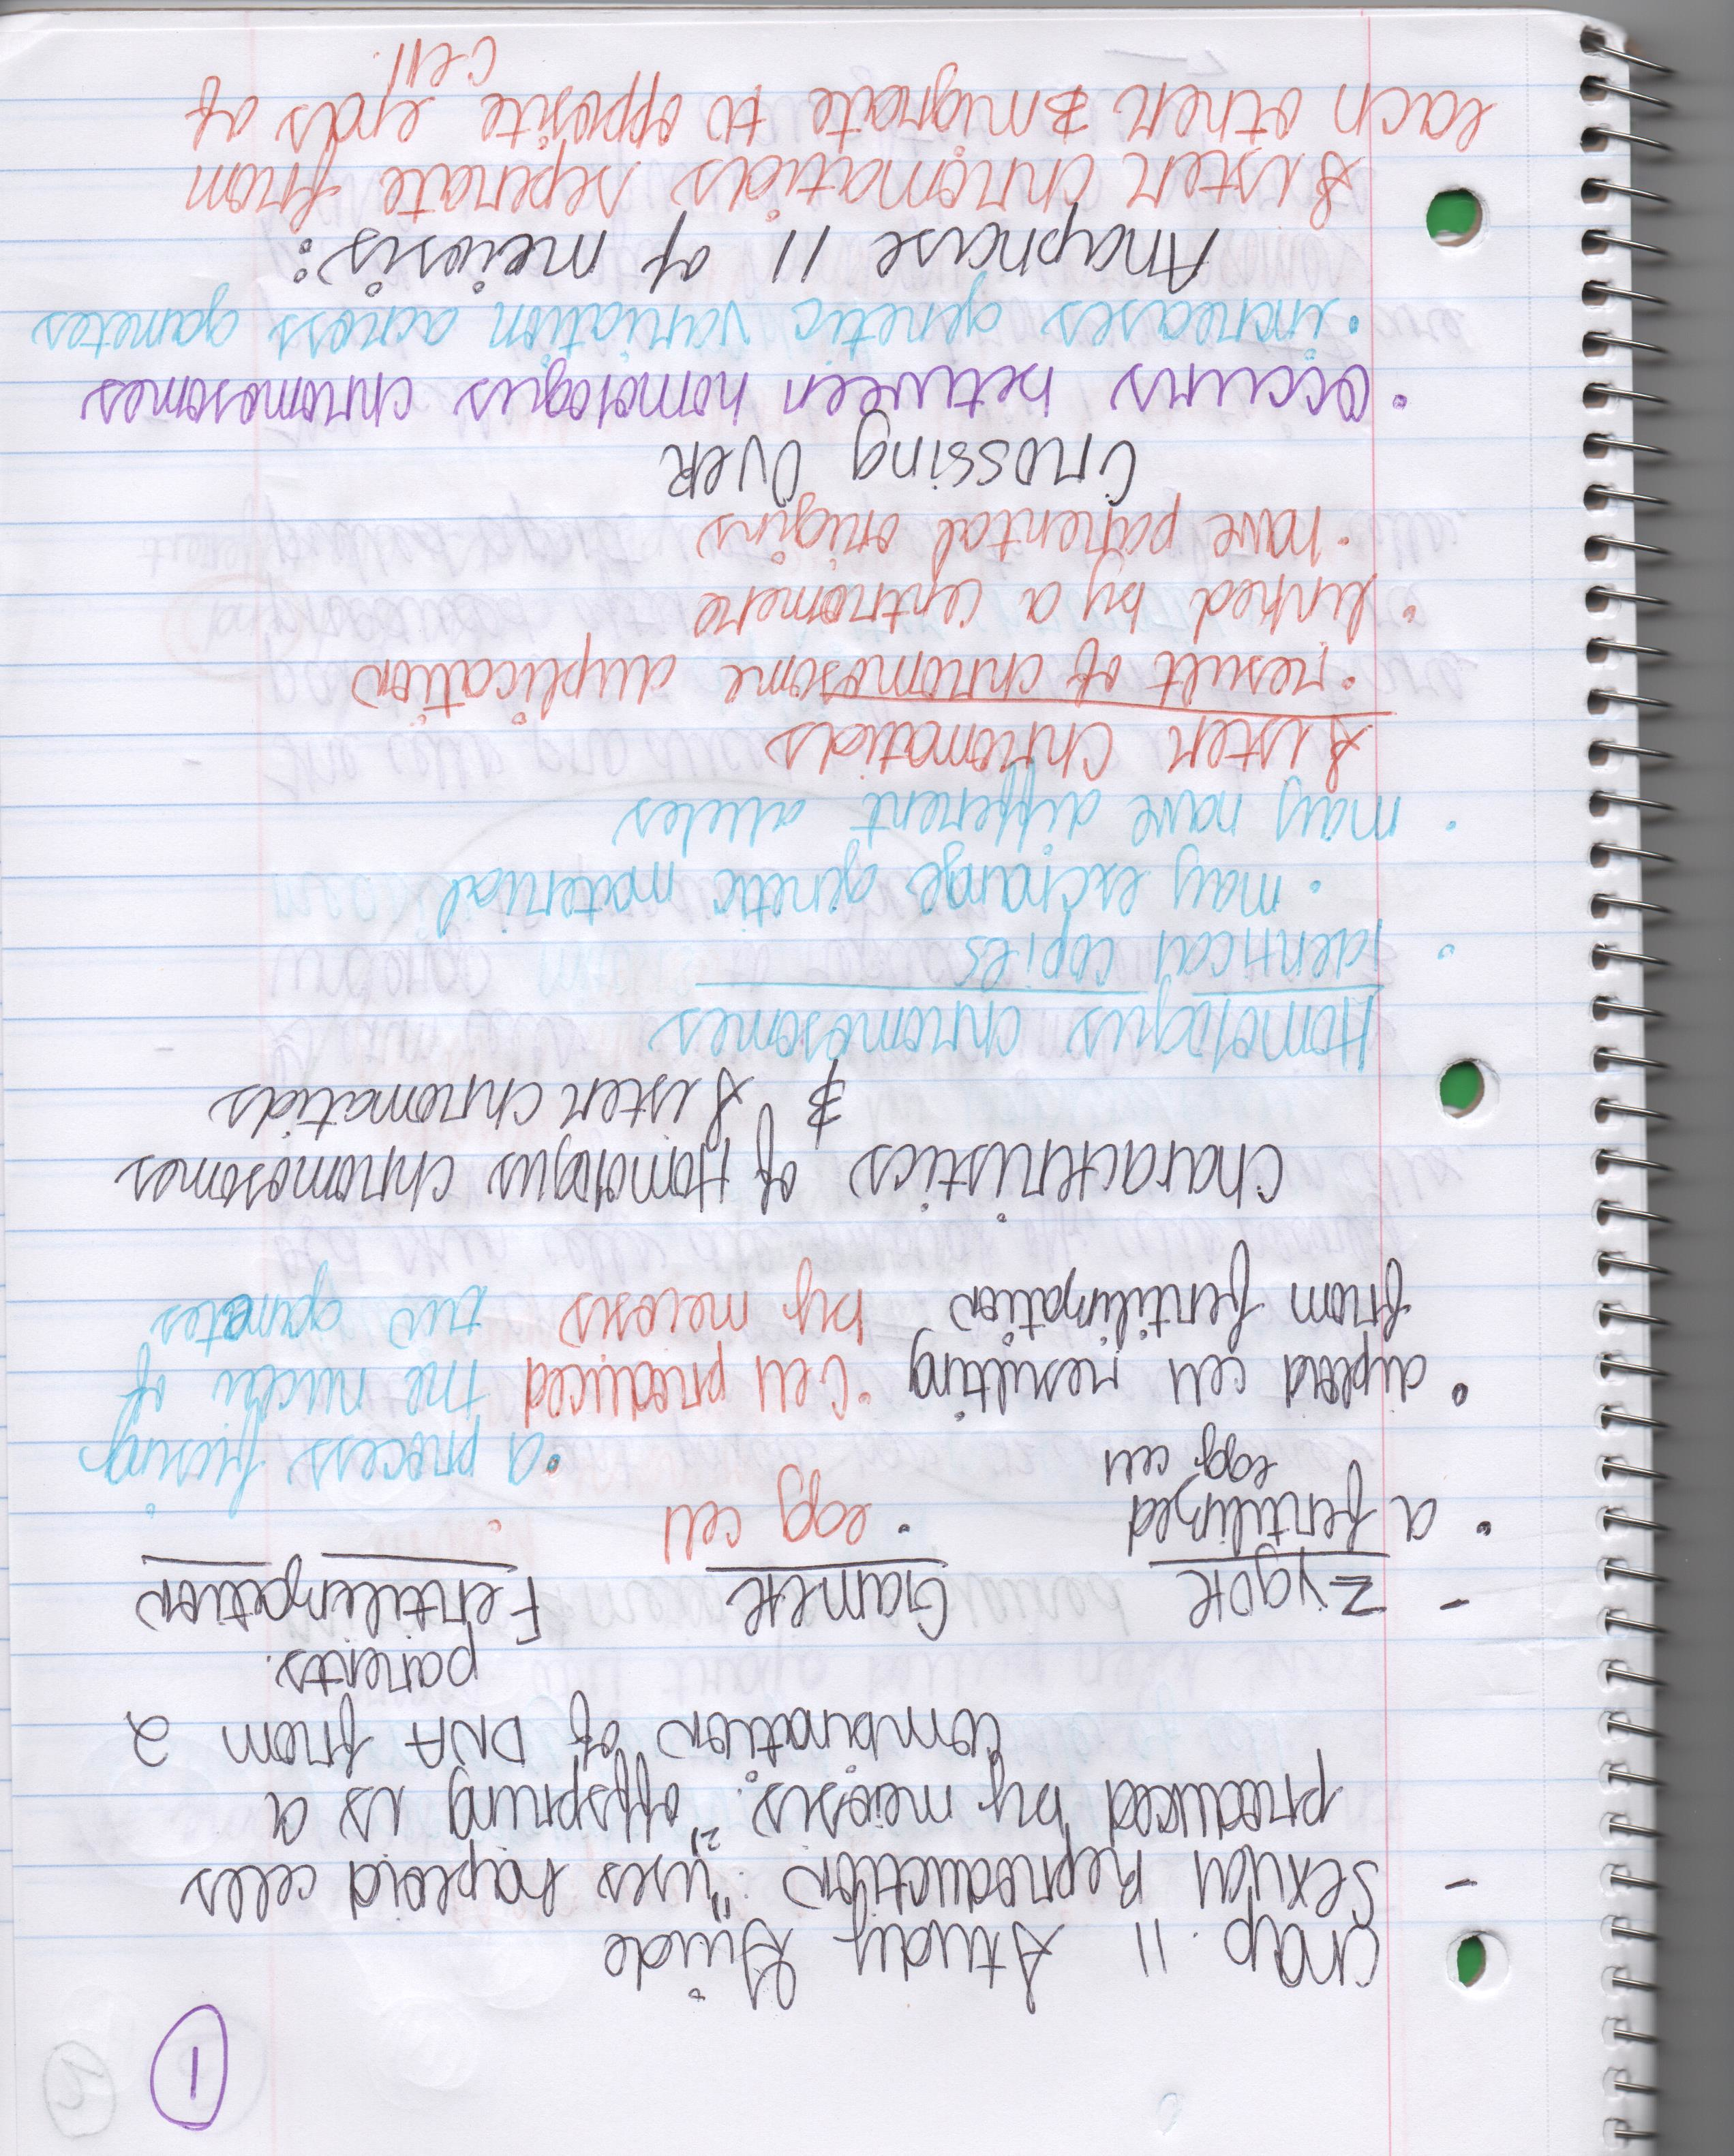 1
Chap. 11 Study Guide
- Sexual Reproduction: "uses haploid cells
produced by meiosis. 2) offspring is a
combination of DNA from 2
parents.
- Zygote Gamete Fertilization
• a fertilized egg cell • egg cell • a process fusing
• diploid cell resulting • Cell produced the nuclei of
from fertilization by meiosis two gametes
Characteristics of Homologus chromosomes
& Sister chromatids
Homologus chromosomes
• identical copies
• may exchange genetic material
• may have different alleles
Sister Chromatids
• result of chromosome duplication
• linked by a centromere
• have parental origins
Crossing Over
• Occurs between homologus chromosomes
• increases genetic variation across gametes
Anaphase II of meiosis:
Sister chromatids seperate from
each other & migrate to opposite ends of
cell.